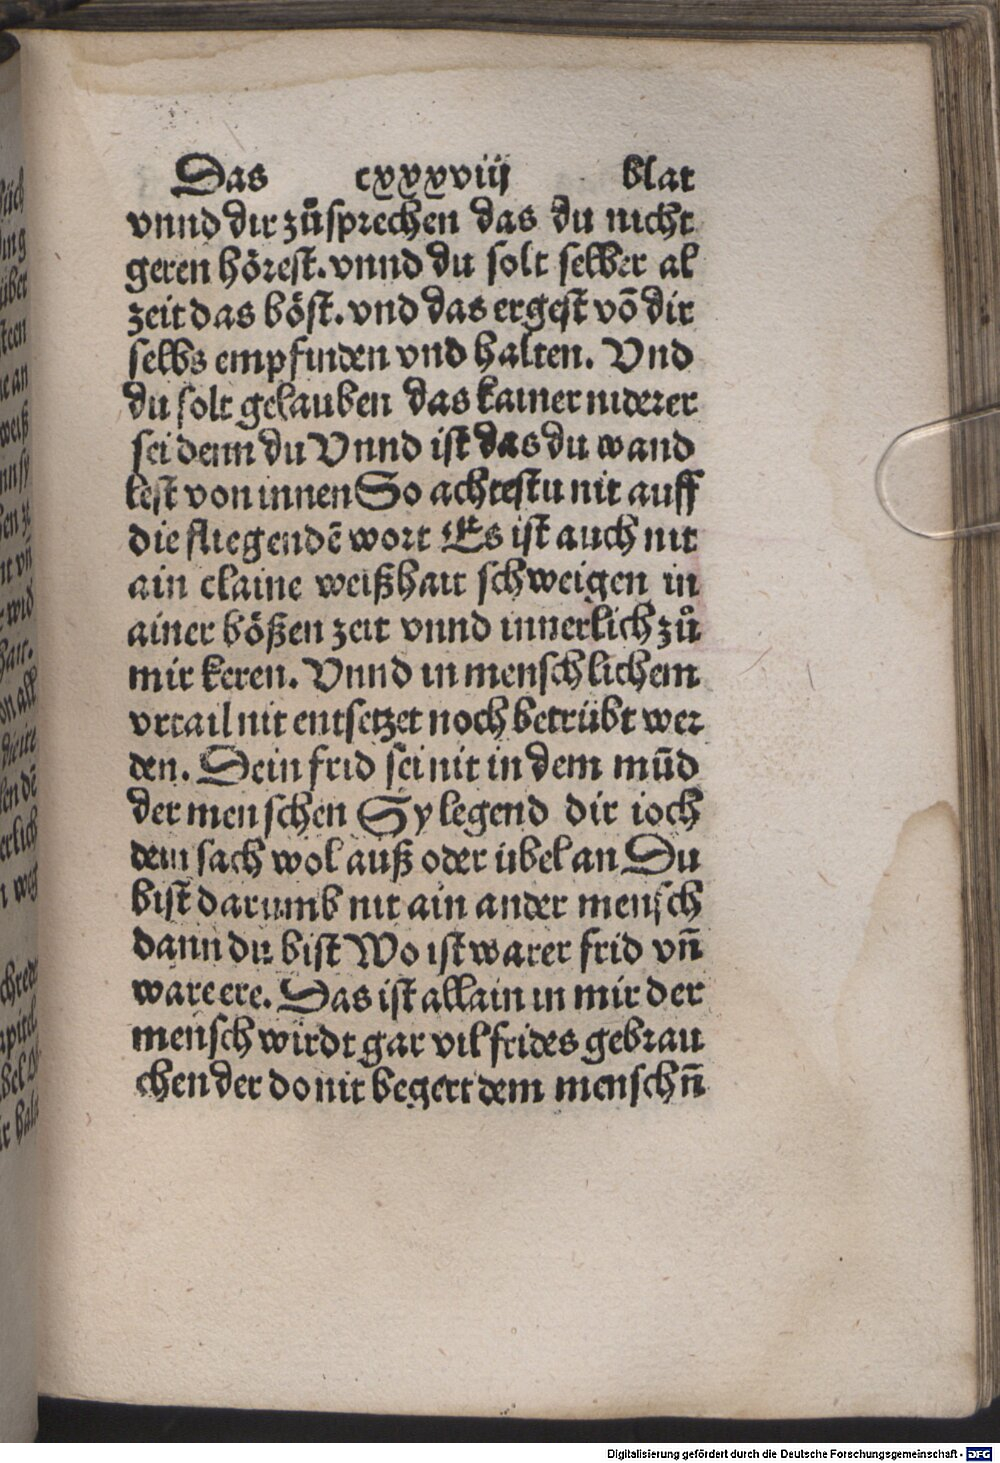 Das cxxxviij blat
vnnd dir zůsprechen das du nicht
geren hörest. vnnd du solt selber al
zeit das böst. vnd das ergest vō dir
selbs empfinden vnd halten. Vnd
du solt gelauben das kainer niderer
sei denn du Vnnd ist das du wand
lest von innen So achtestu nit auff
die fliegendē wort Es ist auch nit
ain claine weißhait schweigen in
ainer bößen zeit vnnd innerlich zů
mir keren. Vnnd in menschlichem
vrtail nit entsetzet noch betrübt wer
den. Dein frid sei nit in dem mūd
der menschen Sy legend dir ioch
dein sach wol auß oder übel an Du
bist darumb nit ain ander mensch
dann du bist Wo ist warer frid vn̄
ware ere. Das ist allain in mir der
mensch wirdt gar vil frides gebrau
chen der do nit begert dem menschn̄
Digitalisierung gefördert durch die Deutsche Forschungsgemeinschaft - DFG